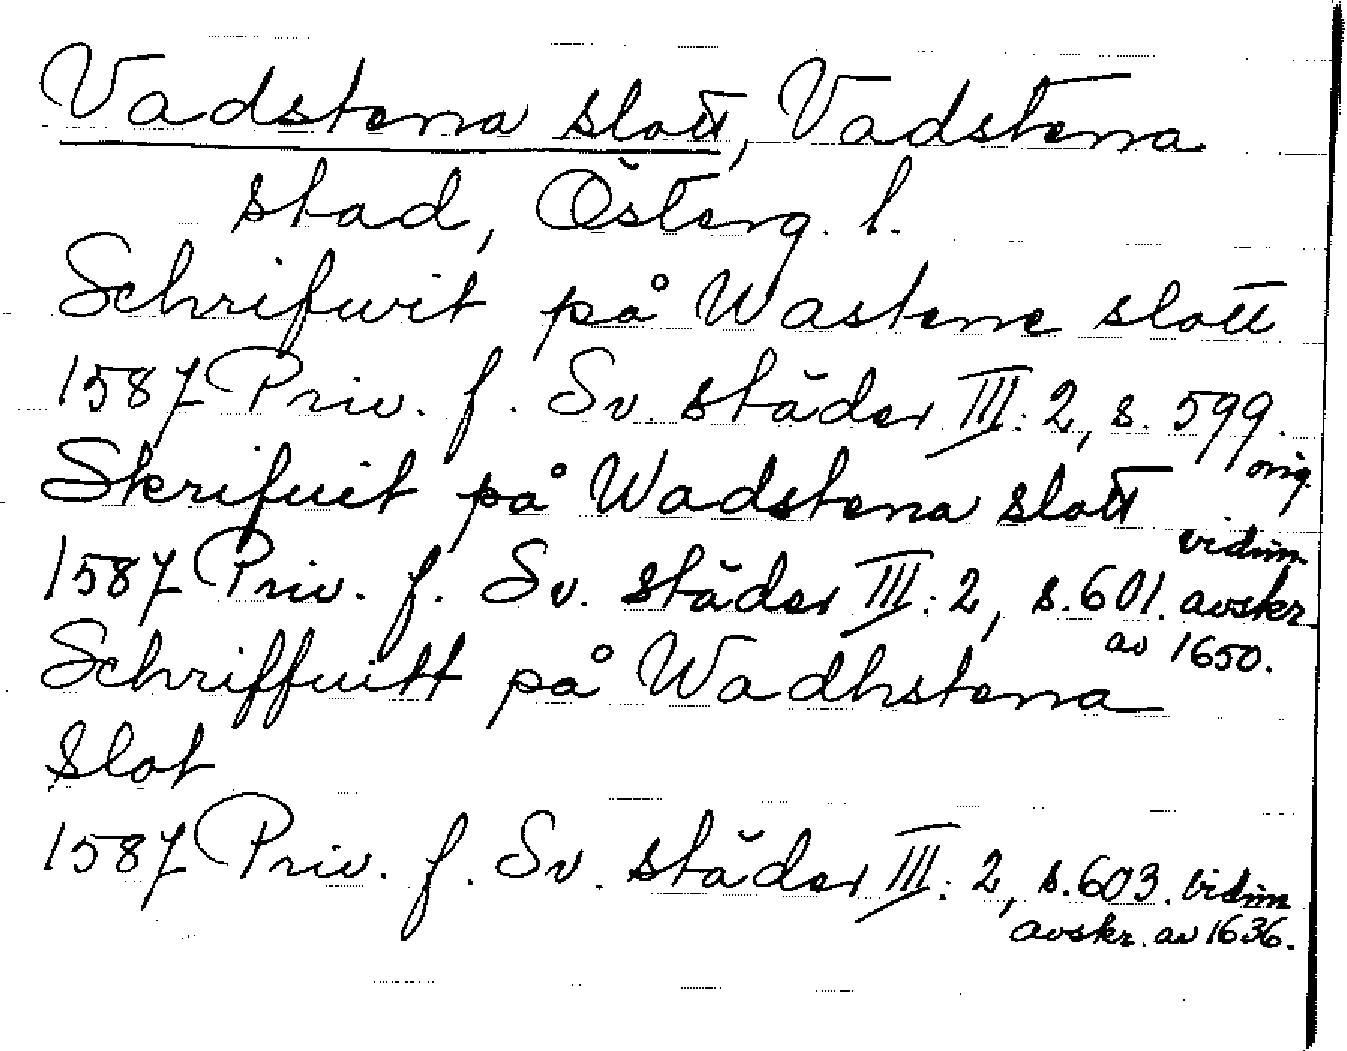 Vadstena slott, Vadstena
stad, Österg. l.
Schrifwit på Wastene slott
1587 Priv. f. Sv. städer III: 2, s. 599.
orig.
Skrifuit på Wadstena slott
1587 Priv. f. Sv. städer III: 2, s. 601. vidim
avskr
av 1650.
Schriffuitt på Wadhstena
Slot
1587 Priv. f. Sv. städer III: 2, s. 603. vidim
avskr. av 1636.